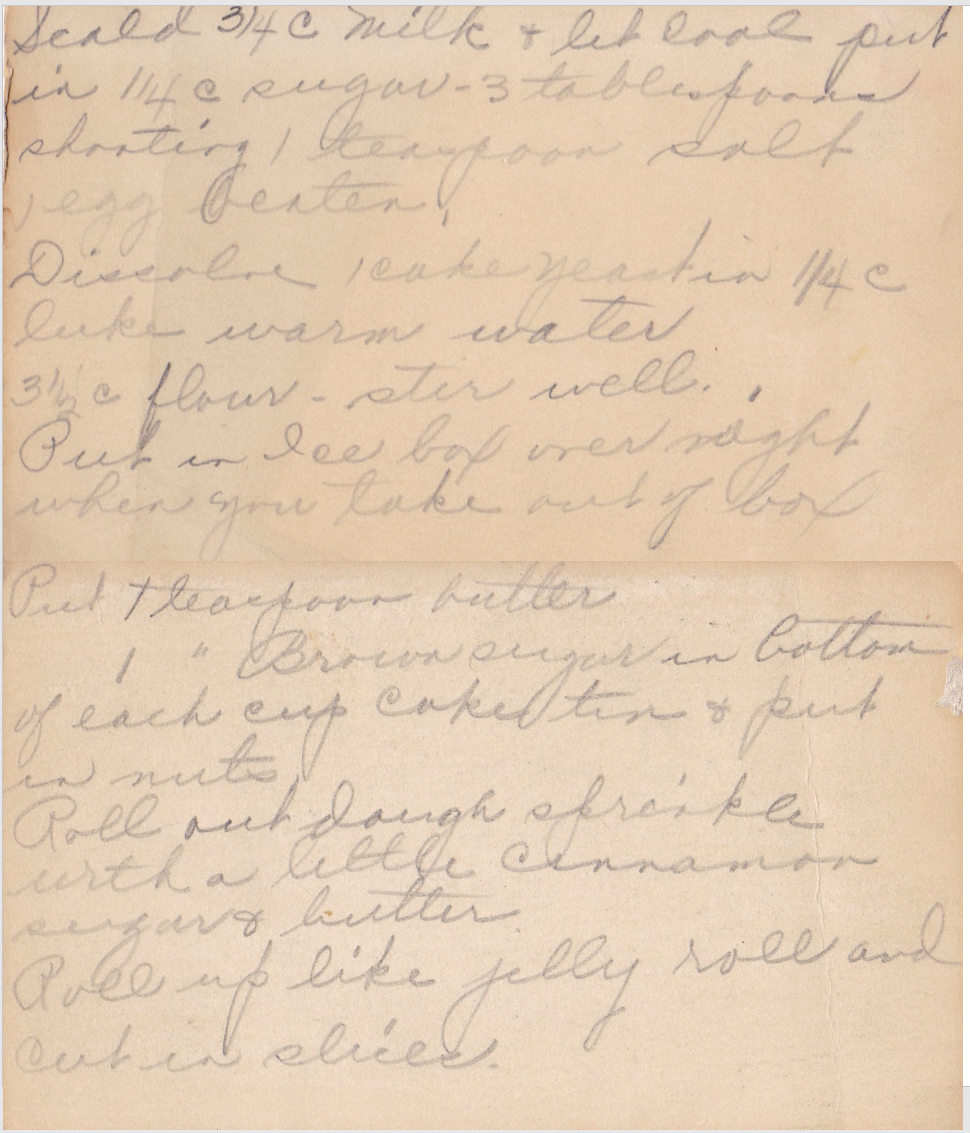 Scald 3/4 c milk & let cool put
in 1/4 c sugar - 3 tablespoons
shorting 1 teaspoon salt
1 egg beaten.
Dissolve 1 cake yeast in 1/4 c
luke warm water
3 1/2 c flour - ster well.
Put in Ice box over night
when you take out of box
Put 1 teaspoon butter
1 " Brown sugar in bottom
of each cup cake tin & put
in nuts
Roll out dough sprinkle
with a little cinnamon
sugar & butter
Roll up like jelly roll and
cut in slices.